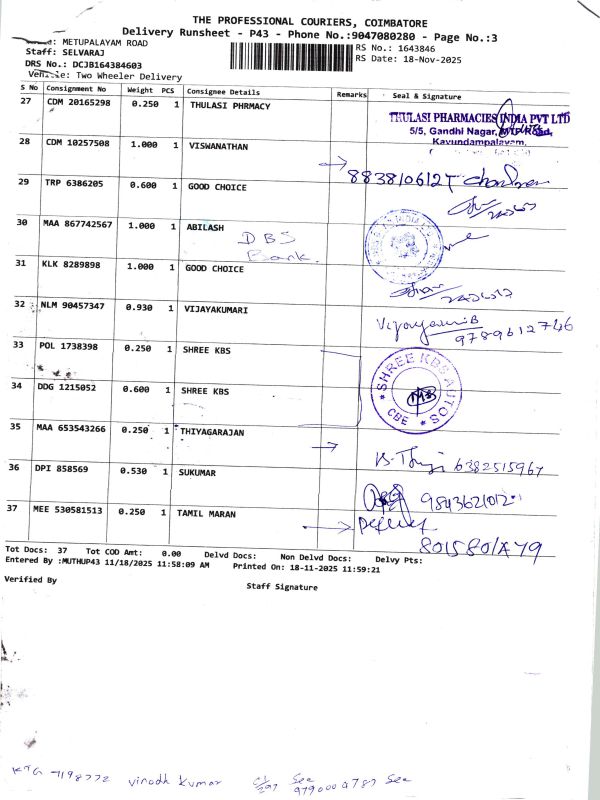 THE PROFESSIONAL COURIERS, COIMBATORE
Delivery Runsheet - P43 - Phone No.:9047080280 - Page No.:3
METUPALAYAM ROAD
Staff: SELVARAJ
RS No.: 1643846
DRS No.: DCJB164384603
RS Date: 18-Nov-2025
Vehicle: Two Wheeler Delivery
S No Consignment No Weight PCS Consignee Details Remarks Seal & Signature
27 CDM 20165298 0.250 1 THULASI PHRMACY
THULASI PHARMACIES INDIA PVT LTD
5/5, Gandhi Nagar, MTP Road,
Kavundampalayam,
28 CDM 10257508 1.000 1 VISWANATHAN
29 TRP 6386205 0.600 1 GOOD CHOICE
30 MAA 867742567 1.000 1 ABILASH
DBS
Bank.
31 KLK 8289898 1.000 1 GOOD CHOICE
32 NLM 90457347 0.930 1 VIJAYAKUMARI
9789612746
33 POL 1738398 0.250 1 SHREE KBS
SHREE KBS AUTOS
CBE
34 DDG 1215052 0.600 1 SHREE KBS
35 MAA 653543266 0.250 1 THIYAGARAJAN
6382515967
36 DPI 858569 0.530 1 SUKUMAR
9843621012
37 MEE 530581513 0.250 1 TAMIL MARAN
Tot Docs: 37 Tot COD Amt: 0.00 Delvd Docs: Non Delvd Docs: Delvy Pts:
Entered By :MUTHUP43 11/18/2025 11:58:09 AM Printed On: 18-11-2025 11:59:21
Verified By
Staff Signature
KTG 7198772 vinodh kumar